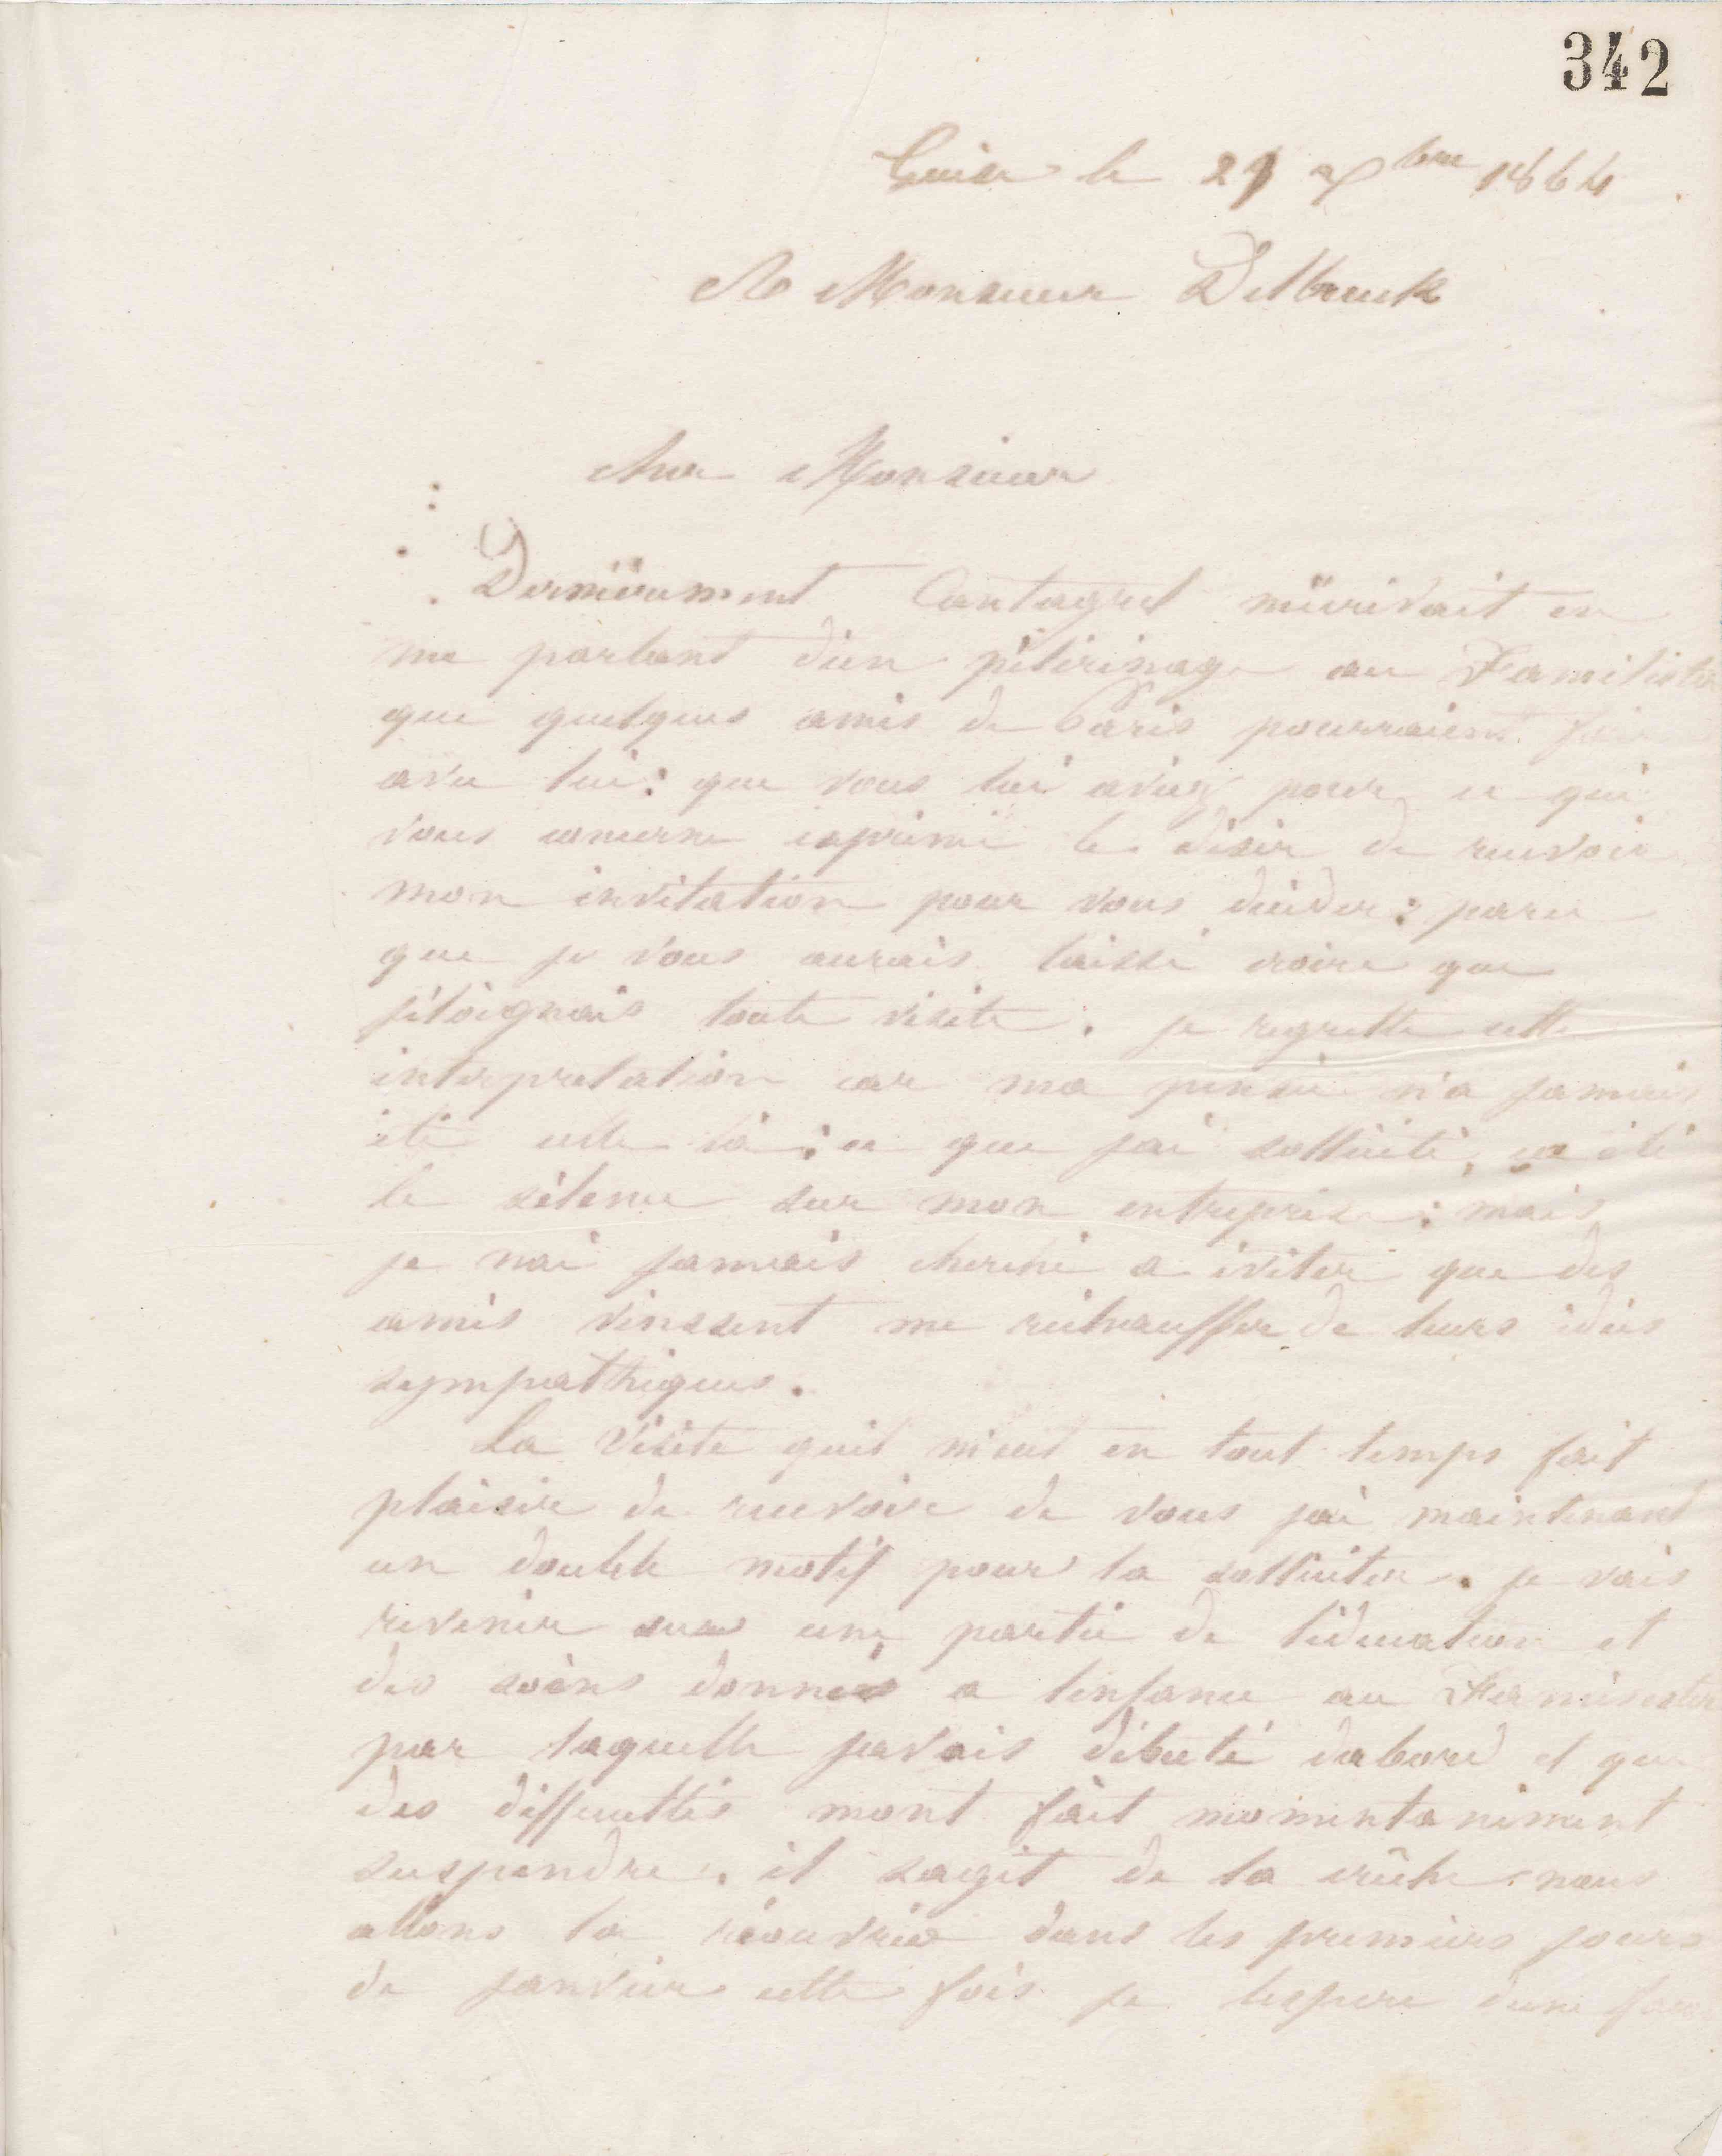 342
Guise le 29 Xbre 1864
A Monsieur Delbruck
cher Monsieur
Dernièrement Cantagrel m'écrivait en
me parlant d'un pélerinage au Familistère
que quelques amis de Paris pourraient faire
avec lui : que vous lui aviez pour ce qui
vous concerne exprimé le désir de recevoir
mon invitation pour vous décider : parce
que je vous aurais laissé croire que
j'éloignais toute visite. je regrette cette
interpretation car ma pensée n'a jamais
été celle là : ce que j'ai sollicité, ça été
le silence sur mon entreprise : mais
je n'ai jamais cherché a éviter que des
amis vinssent me réchauffer de leurs idées
sympathiques.
La visite quil m'eut en tout temps fait
plaisir de recevoir de vous j'ai maintenant
un double motif pour la solliciter. je vais
revenir sur une partie de l'éducation et
des soins donnés a lenfance au Familistère
par laquelle javais débuté dabord et que
des difficultés mont fait momentanément
suspendre. il sagit de la crêche nous
allons la réouvrir dans les premiers jours
de janvier cette fois je lespere dune